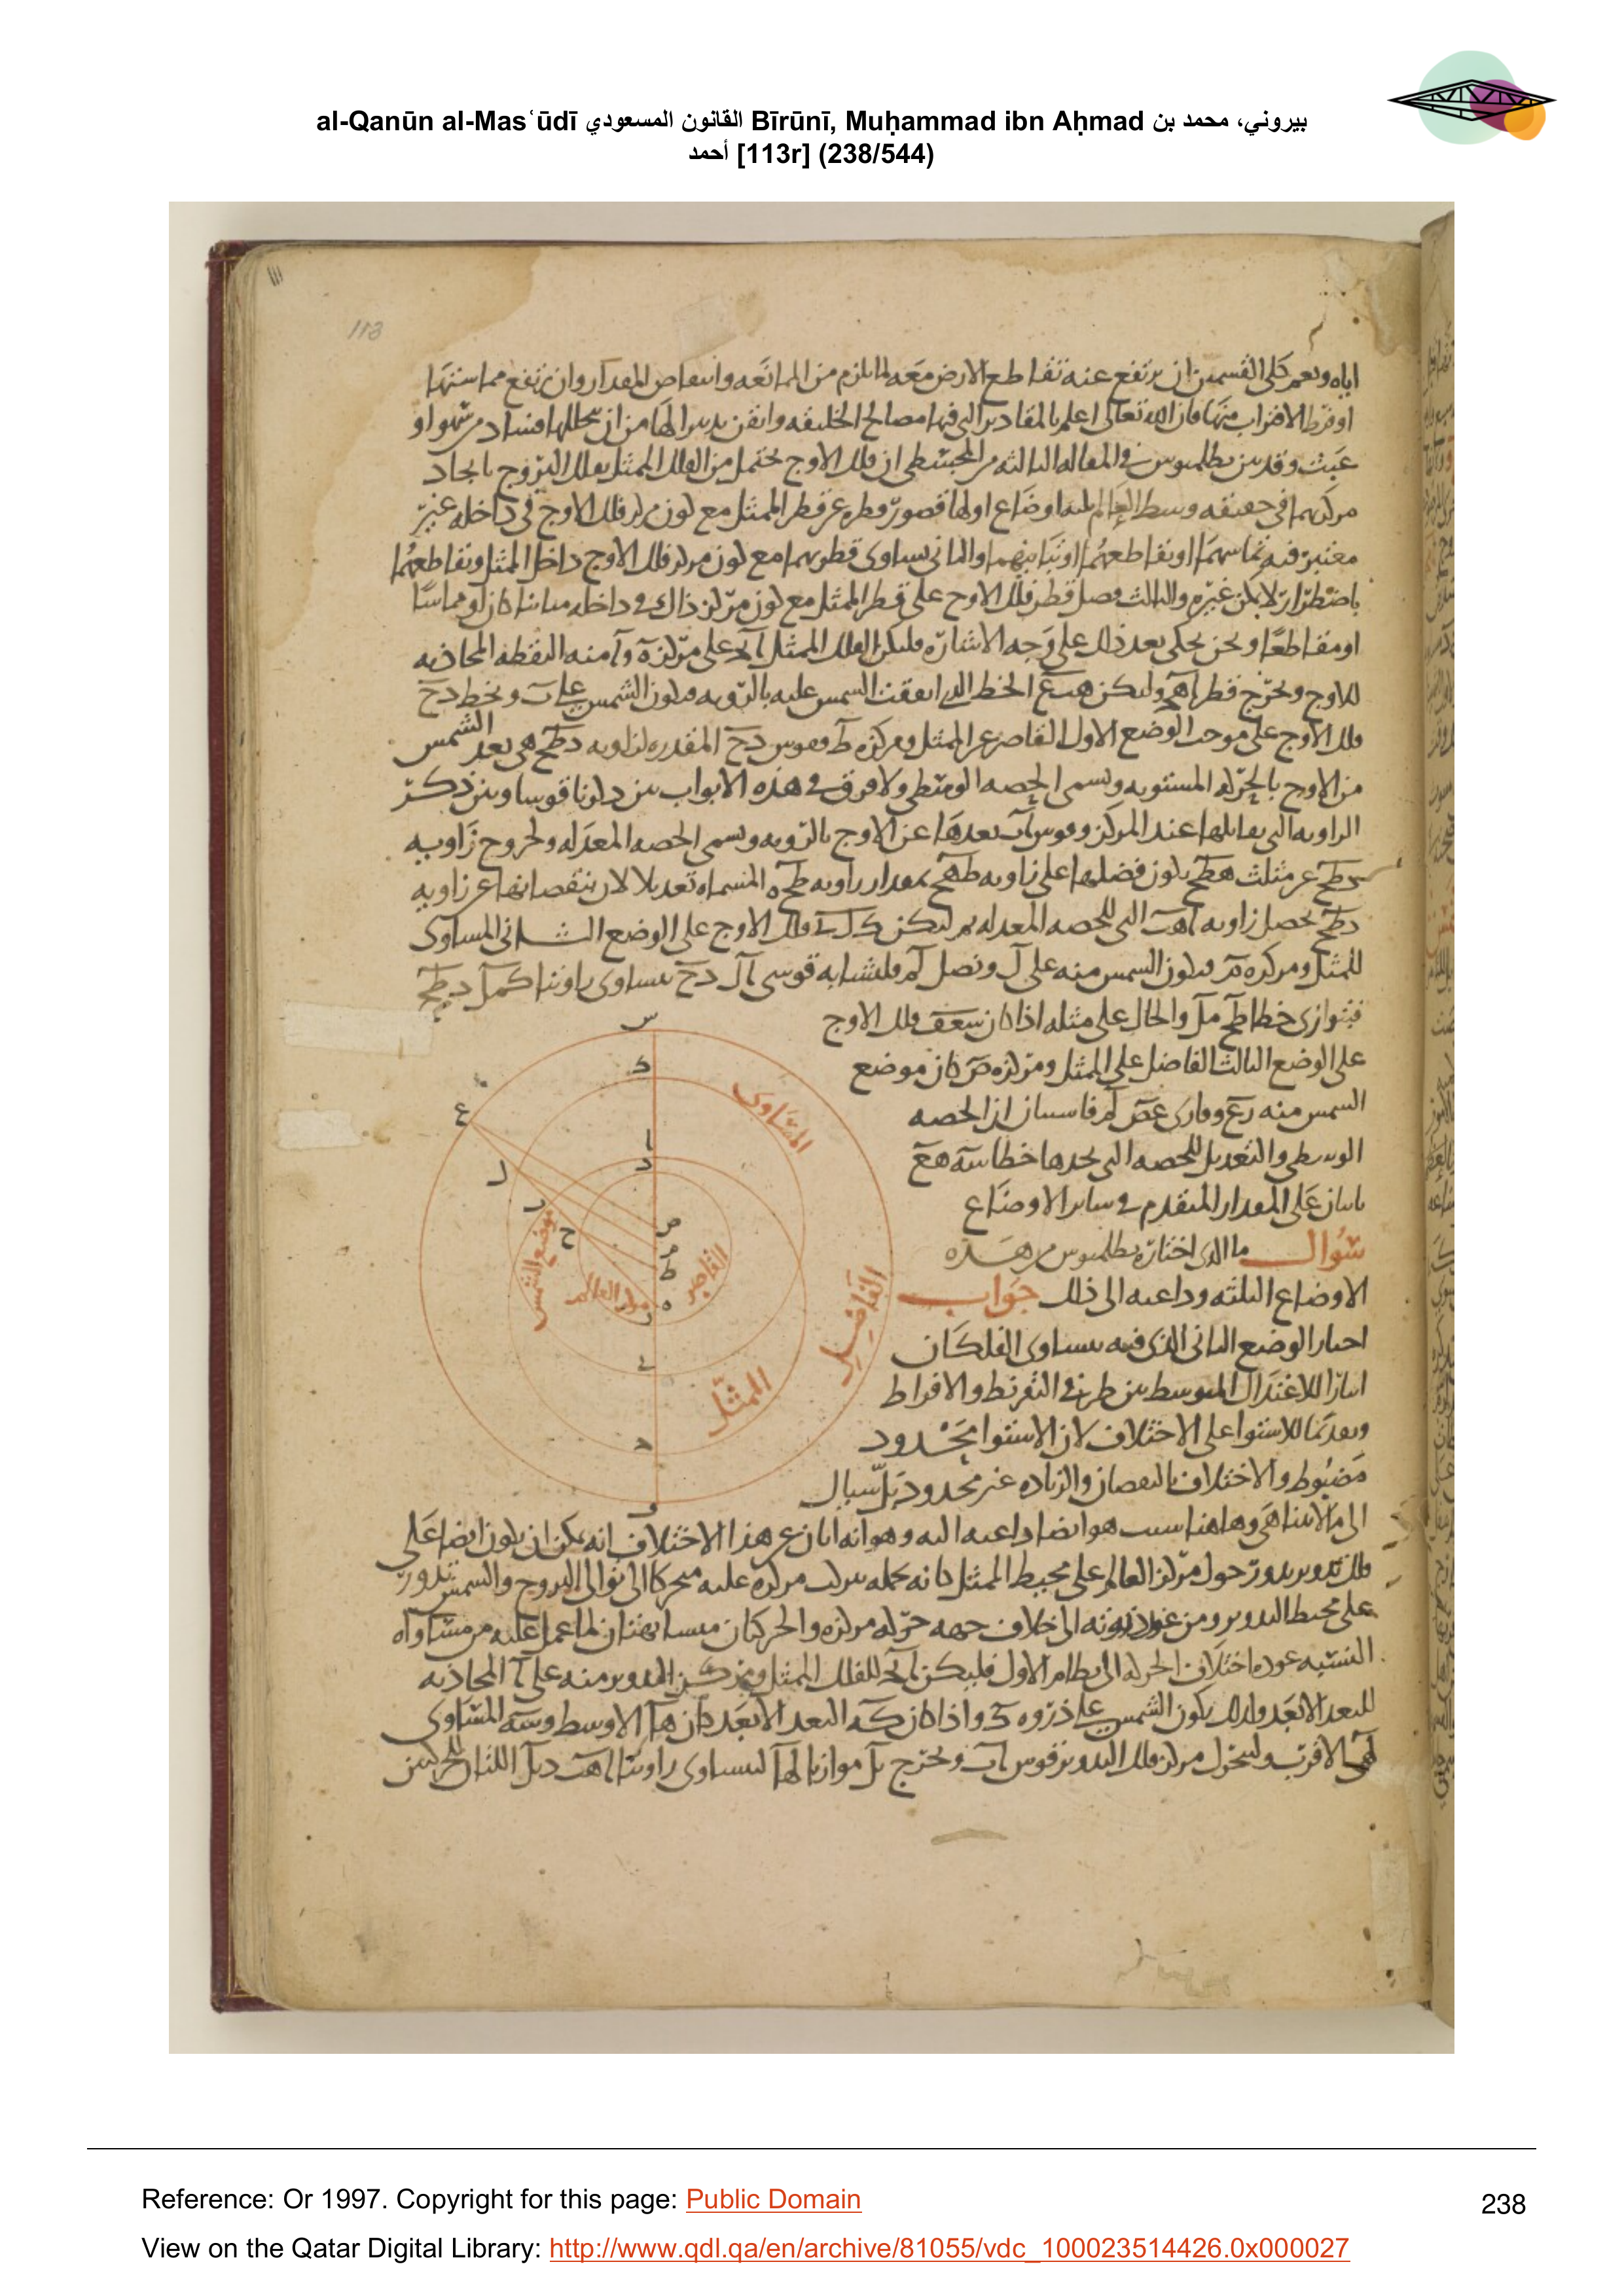 al-Qanūn al-Masʿūdī القانون المسعودي Bīrūnī, Muḥammad ibn Aḥmad بيروني، محمد بن
أحمد [113r] (238/544)
113
اياه ويعم كلى القسمين ان يرتفع عنه تقاطع الارض معه لما يلزم من الممانعه وانتقاص المقدار وان يرتفع مماستها
او فرط الاقتراب منها فان الله تعالى اعلم بالمقادير التى فيها مصالح الخليقه واتقن تدبيرا لها من ان يتخللها فساد من سهو او
عبث وقد بين بطلميوس في المقاله الثالثه من المجسطى ان فلك الاوج يحتمل من الفلك الممثل بفلك البروج باتحاد
مركزيهما في حقيقه وسط العالم ثلثه اوضاع اولها قصور قطره عن قطر الممثل مع كون مركز فلك الاوج فى داخله غير
معتبر فيه تماسهما او تقاطعهما او تباينهما والثانى تساوى قطريهما مع كون مركز فلك الاوج داخل الممثل وتقاطعهما
باضطرار لا يمكن غيره والثالث فصل قطر فلك الاوج على قطر الممثل مع كون مركز ذاك في داخله مباينا كان او مماسا
او مقاطعا ونحن نحكى بعد ذلك على وجه الاشاره فليكن الفلك الممثل آبج على مركز ه وآ منه النقطه المحاذيه
للاوج ونخرج قطر اهج وليكن هبع الخط الذى اتفقت الشمس عليه بالرويه فيكون الشمس على ب ونخط دح
فلك الاوج على موجب الوضع الاول القاصر عن الممثل ومركزه ط وقوس دح المقدره لزاويه دطح هى بعد الشمس
من الاوج بالحركه المستويه وتسمى الحصه الوسطى ولا فرق في هذه الابواب بين ذكرنا قوسا وبين ذكر
الزاويه التى تقابلها عند المركز وقوس اب بعدها عن الاوج بالرويه وتسمى الحصه المعدله ولخروج زاويه
دطح عن مثلث هطح يكون فضلها على زاويه طهح بمقدار زاويه طحه المسماه تعديلا لان بنقصانها عن زاويه
دطح يحصل زاويه اهب التى للحصه المعدله ثم ليكن كل فلك الاوج على الوضع الثانى المساوى
للممثل ومركزه م فيكون الشمس منه على ل ونصل لم فلتشابه قوسى كل دح يتساوى زاويتا كمل دطح
فيتوازى خطا طح مل والحال على مثله اذا كان سع فلك الاوج
على الوضع الثالث الفاضل على الممثل ومركزه ص كان موضع
الشمس منه ع ووازى عص لم فاستبان ان الحصه
الوسطى والتعديل للحصه التى يحدها خطا سه هع
ثابتان على المقدار المتقدم في ساير الاوضاع
سؤال ما الذى اختاره بطلميوس من هذه
الاوضاع الثلثه وداعيه الى ذلك جواب
اختار الوضع الثانى الذى فيه يتساوى الفلكان
ايثارا للاعتدال المتوسط بين طرفى التفريط والافراط
وتقديما للاستوا على الاختلاف لان الاستوا محدود
مضبوط والاختلاف بالنقصان والزياده غير محدود بل سيال
الى ما لا يتناهى وهاهنا سبب هو ايضا داعيه اليه وهو انه ابان عن هذا الاختلاف انه يمكن ان يكون ايضا على
فلك تدوير يدور حول مركز العالم على محيط الممثل كانه يحمله بتركب مركزه عليه متحركا الى توالى البروج والشمس تدور
على محيط التدوير ومن عند ذروته الى خلاف جهه حركه مركزه والحركتان متشابهتان لما عمل عليه من مساواه
النسبه عوده اختلاف الحركه الى نظام الاول فليكن ابج للفلك الممثل ومركز التدوير منه على ا المحاذيه
للبعد الابعد ولذلك يكون الشمس على ذروه ك واذا كان كه البعد الابعد كان ها الاوسط وسه المساوى
لهى الاقرب وليتحرك مركز فلك التدوير قوس اب ونخرج بل موازيا لها ليتساوى زاويتا اهب دبل اللتان للحركتين
س
ك
ا
د
ع
ل
ب
ح
ص
م
ط
ه
ز
ى
ج
و
المساوى
القاصر
الفاضل
الممثل
موضع الشمس
مركز العالم
Reference: Or 1997. Copyright for this page: Public Domain
238
View on the Qatar Digital Library: http://www.qdl.qa/en/archive/81055/vdc_100023514426.0x000027